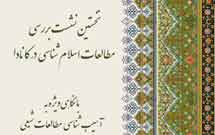 نخستین نشست بررسی
مطالعات اسلام شناسی در کانادا
با نگاهی ویژه به
آسیب شناسی مطالعات شیعی